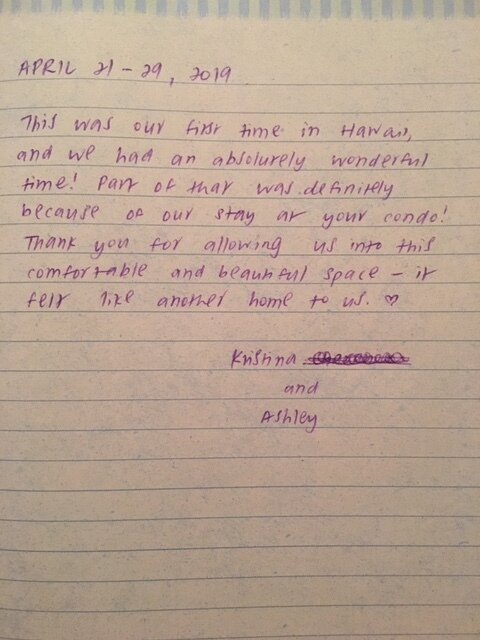 APRIL 21 - 29, 2019
This was our first time in Hawaii,
and we had an absolutely wonderful
time! Part of that was definitely
because of our stay at your condo!
Thank you for allowing us into this
comfortable and beautiful space - it
felt like another home to us. ♡
Kristina
and
Ashley